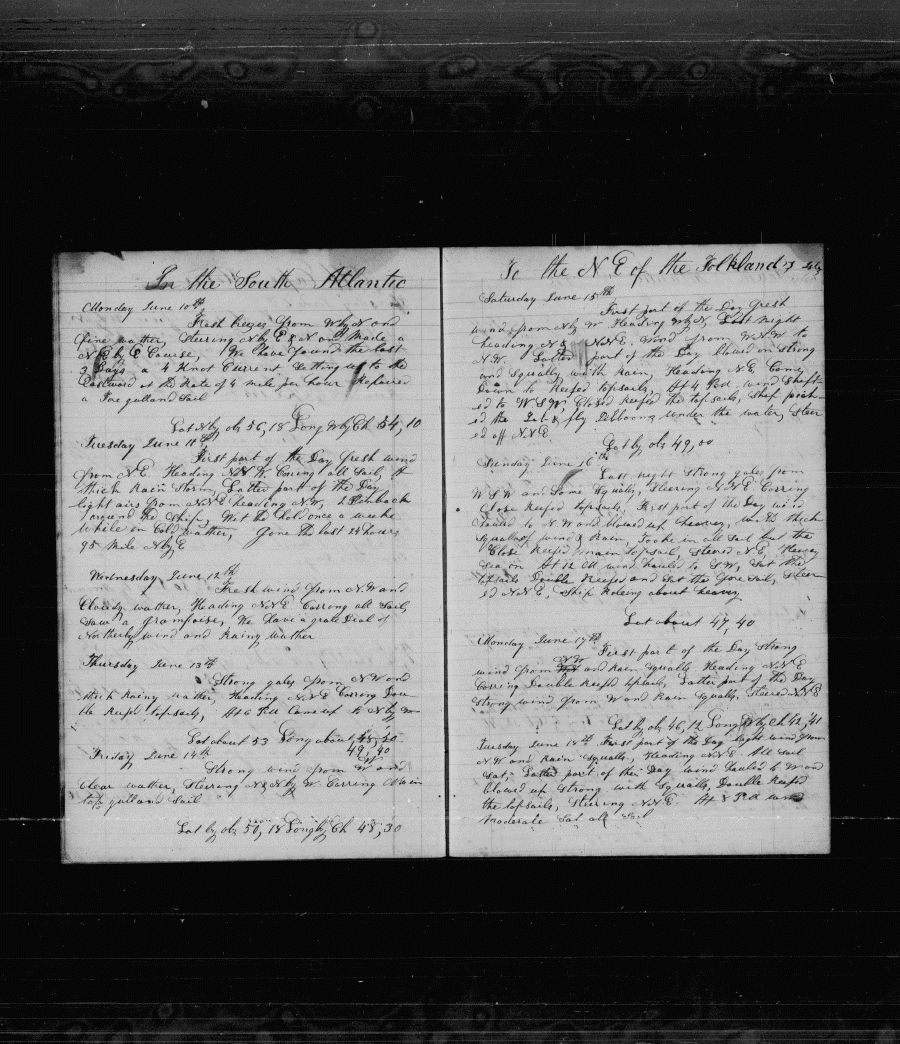 In the South Atlantic
Monday June 10th
Fresh breezes from W by N and
fine wather, Steering N by E & N and Made a
N E by E Course, We have found the last
3 Days a 4 Knot Current Setting us to the
Eastward at the Rate of 4 mile per hour Repaired
a Fore gulland Sail
Lat by obs 56, 18 Long W by Ch 54, 10
Tuesday June 11th
First part of the Day fresh wind
from N E Heading N N W Corring all Sail, A
thick Rain Storm Latter part of the Day
light airs from N N E heading N W, 2 Finback
around the Ship, Wet the hold once a weeke
While in Cold wather, Gone the last 24 hours
95 Mile N by E
Wednesday June 12th
Fresh wind from N W and
Cloudy wather, Heading N N E Corrong all Sail,
Saw a grampoise, We have a grate Deal of
Northerly wind and Rainy wather
Thursday June 13th
Strong gales from N W and
thick Rainy wather, Heading N N E Corrong Dou
ble Reefd topsails, At 6 P M Came up to N by W
Lat about 53 Long about 48, 20
49, 40
Friday June 14th
Strong wind from W and
Clear wather, Steering N & N by W Corring Main
top gulland Sail
Lat by obs 50, 18 Long by Ch 48, 30
To the N E of the Folkland
Saturday June 15th
First part of the Day fresh
wind from N by W Heading W by N, Last night
heading N & N N E, Wind from W N W to
N W. Latter part of the Day blowed on strong
and Squally with Rain, Heading N E Came
Down to Reefed topsails, At 4 P M wind Shift
ed to W S W, Closed Reefed the topsails, Ship pitch
ed the Jib & fly Jibboom under the water, Steer
ed off N N E
Lat by obs 49, 00
Sunday June 16th
Last night strong gales from
W S W and Some Squally, Steering N N E Corring
Close Reefed topsails, First part of the Day wind
hauled to N W and blowed up heavy, with thick
Squalls of wind & Rain, Tooke in all Sail but the
Close Reefed main topsail, Steered N E, Heavy
Sea on At 12 M wind hauled to S W, Sat the
topsails Double Reefed and Sat the fore Sail, Steer
ed N N E, Ship Roleing about heavy
Lat about 47, 40
Monday June 17th
First part of the Day Strong
N W
wind from and Rain Squalls Heading N N E
Corring Double Reefd topsails, Latter part of the Day
Strong wind from W and Rain Squalls, Steered N N E
Lat by obs 46, 12 Long W by Ch 42, 41
Tuesday June 18th First part of the Day light wind from
N W and Rain Squalls, Heading N N E All Sail
Sat, Latter part of the Day wind hauled to W and
blowed up Strong with Squalls, Double Reefed
the topsails, Steering N N E At P M wind
Moderate Sat all Sail